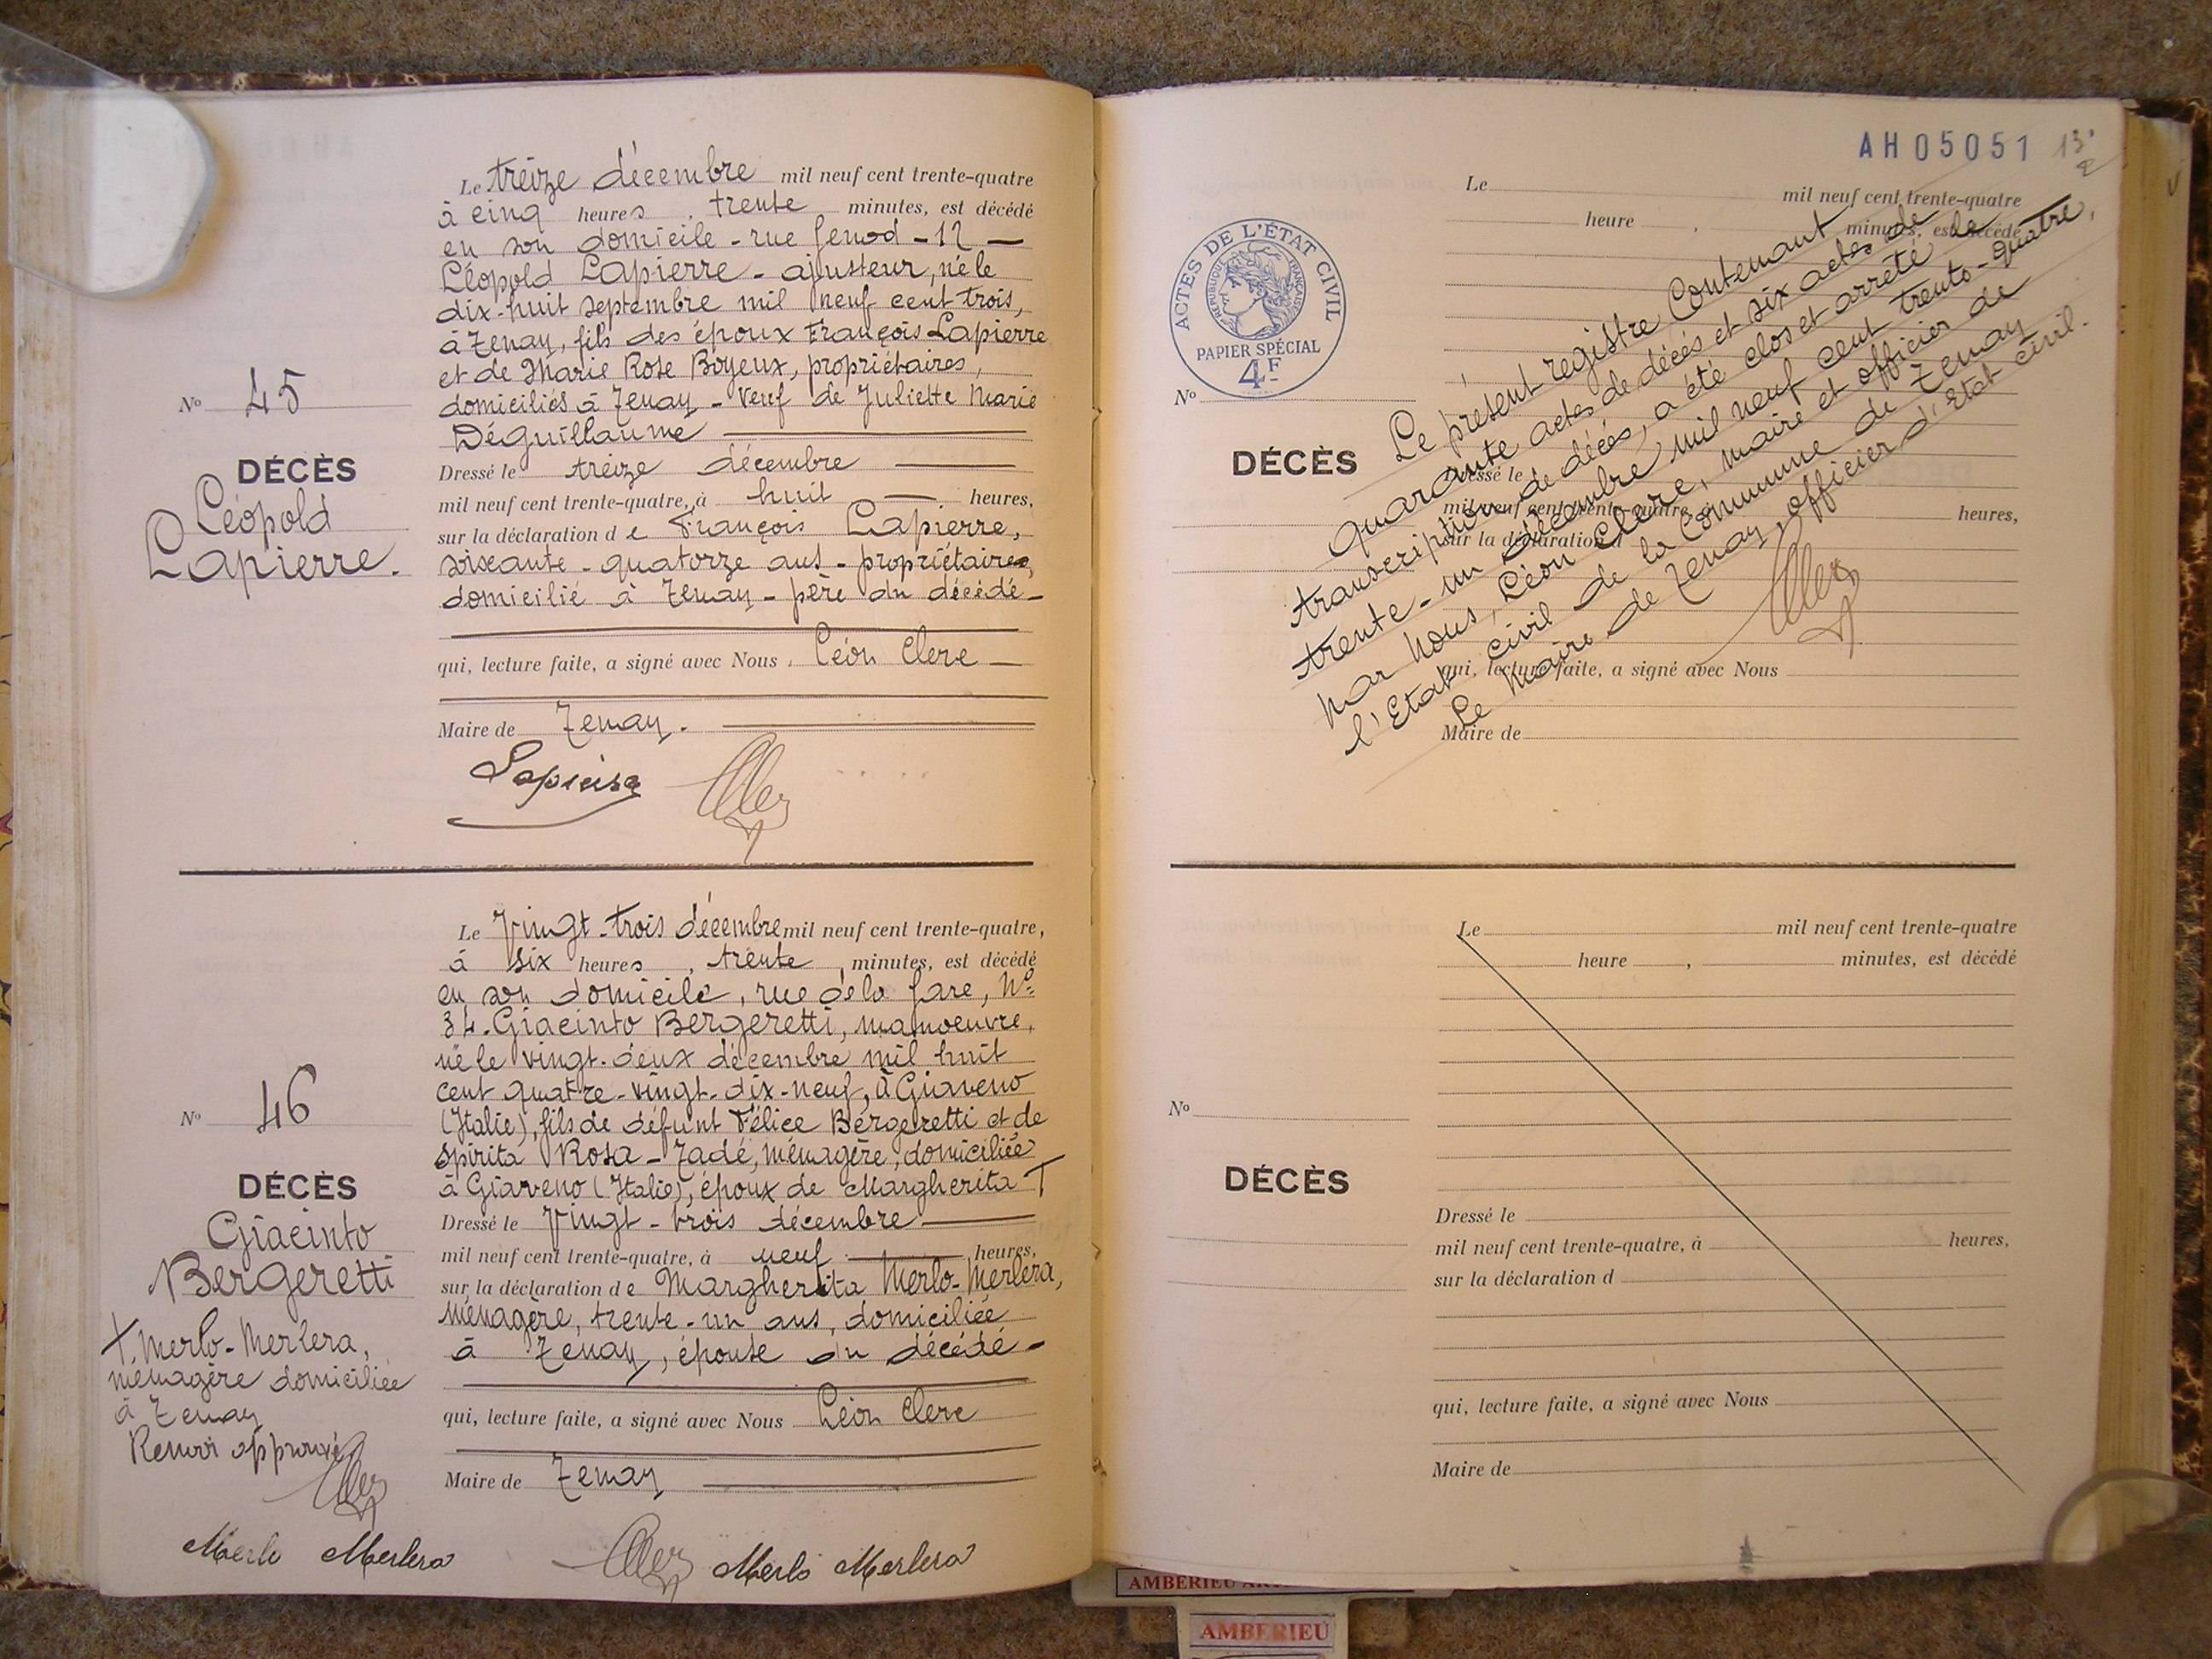 Le treize décembre mil neuf cent trente-quatre
à cinq heures, trente minutes, est décédé
en son domicile - rue Genod - 12 —
Léopold Lapierre - ajusteur, né le
dix-huit septembre mil neuf cent trois,
à Tenay, fils des époux François Lapierre
et de Marie Rose Boyeux, propriétaires,
domiciliés à Tenay - Veuf de Juliette Marie
Déguillaume
Dressé le treize décembre
mil neuf cent trente-quatre, à huit heures,
sur la déclaration de François Lapierre,
soixante-quatorze ans - propriétaires,
domicilié à Tenay - père du décédé -
qui, lecture faite, a signé avec Nous, Léon Clerc
Maire de Tenay.
Lapierre
No 45
DÉCÈS
Léopold
Lapierre.
Le Vingt-trois décembre mil neuf cent trente-quatre,
à six heures, trente, minutes, est décédé
en son domicile, rue de la Gare, No
34. Giacinto Bergeretti, manoeuvre,
né le vingt-deux décembre mil huit
cent quatre-vingt-dix-neuf, à Giaveno
(Italie), fils de défunt Félice Bergeretti et de
Spirita Rosa-Zadé, ménagère, domiciliée
à Giaveno (Italie), époux de Margherita T
Dressé le Vingt-trois décembre
mil neuf cent trente-quatre, à neuf heures,
sur la déclaration de Margherita Merlo-Merlera,
ménagère, trente-un ans, domiciliée
à Tenay, épouse du décédé -
qui, lecture faite, a signé avec Nous Léon Clerc
Maire de Tenay
No 46
DÉCÈS
Giacinto
Bergeretti
T. Merlo-Merlera,
ménagère domiciliée
à Tenay
Renvoi approuvé
Merlo Merlera
Merlo Merlera
AH05051 13e
ACTES DE L'ÉTAT CIVIL
RÉPUBLIQUE FRANÇAISE
PAPIER SPÉCIAL
4F
Le mil neuf cent trente-quatre
heure , minutes, est décédé
No
DÉCÈS
Dressé le
mil neuf cent trente-quatre, à heures,
sur la déclaration d
qui, lecture faite, a signé avec Nous
Maire de
Le présent registre Contenant
quarante actes de décès et six actes de
transcription de décès, a été clos et arrêté le
trente-un décembre mil neuf cent trente-quatre,
par Nous, Léon Clerc, maire et officier de
l'Etat civil de la Commune de Tenay
Le Maire de Tenay, officier d'Etat civil.
Le mil neuf cent trente-quatre
heure , minutes, est décédé
No
DÉCÈS
Dressé le
mil neuf cent trente-quatre, à heures,
sur la déclaration d
qui, lecture faite, a signé avec Nous
Maire de
AMBERIEU
AMBERIEU